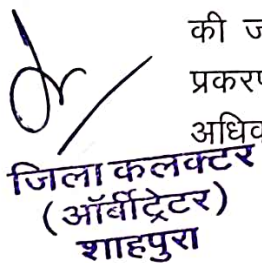 की ज
प्रकरण
अधिव
जिला कलक्टर
(ऑर्बीट्रेटर)
शाहपुरा